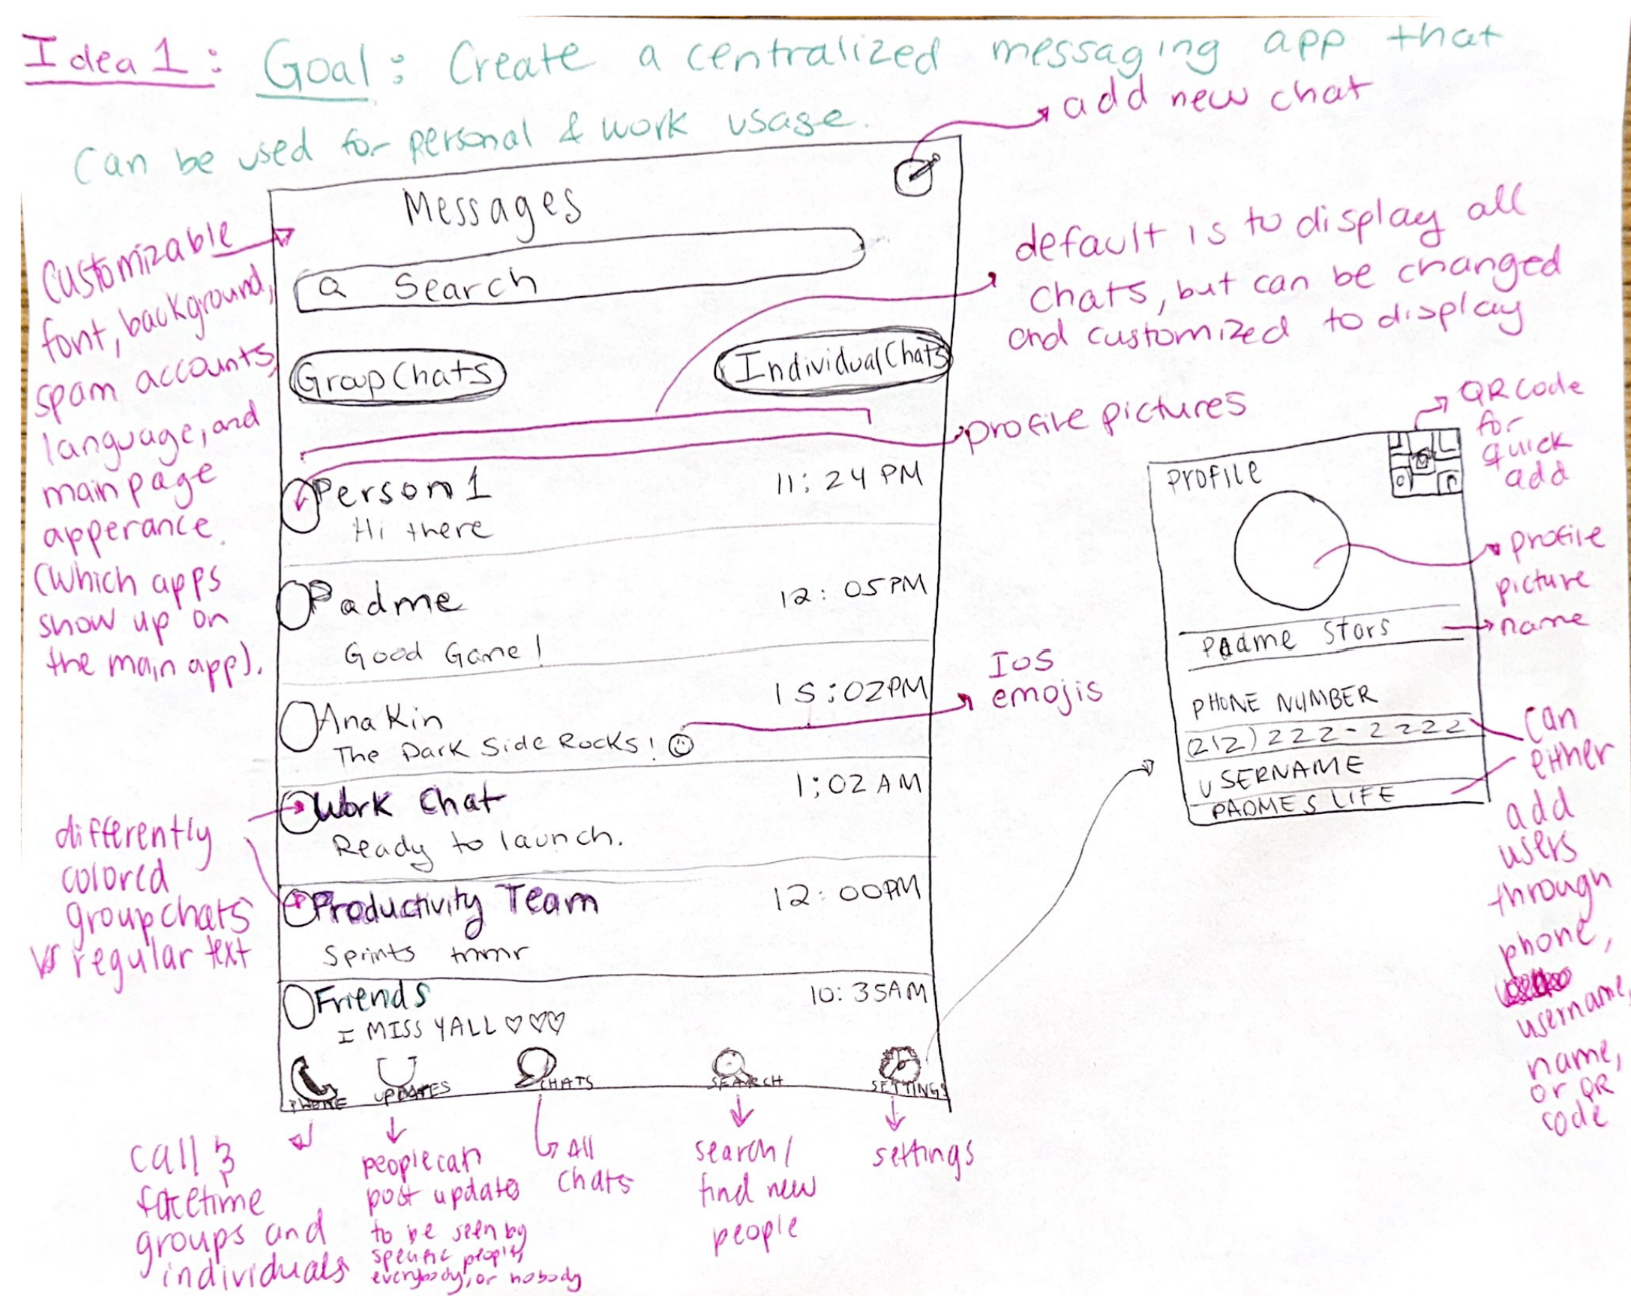 Idea 1: Goal: Create a centralized messaging app that
can be used for personal & work usage.
add new chat
Messages
Search
Group Chats
Individual Chats
Customizable
font, background,
spam accounts,
language, and
main page
apperance.
(which apps
show up on
the main app).
default is to display all
chats, but can be changed
and customized to display
profile pictures
Person 1
11:24 PM
Hi there
Padme
12:05PM
Good Game!
Anakin
15:02PM
The Dark Side Rocks! ☺
IOS
emojis
Work Chat
1:02 AM
Ready to launch.
Productivity Team
12:00PM
Sprints tmmr
Friends
10:35AM
I MISS YALL ♡♡♡
differently
colored
groupchats
vs regular text
PHONE
UPDATES
CHATS
SEARCH
SETTINGS
call &
facetime
groups and
individuals
people can
post updates
to be seen by
specific people,
everybody, or nobody
All
chats
search/
find new
people
settings
Profile
QR code
for
quick
add
profile
picture
Padme Stars
name
PHONE NUMBER
(212) 222-2222
USERNAME
PADMES LIFE
can
either
add
users
through
phone,
username,
name,
or QR
code